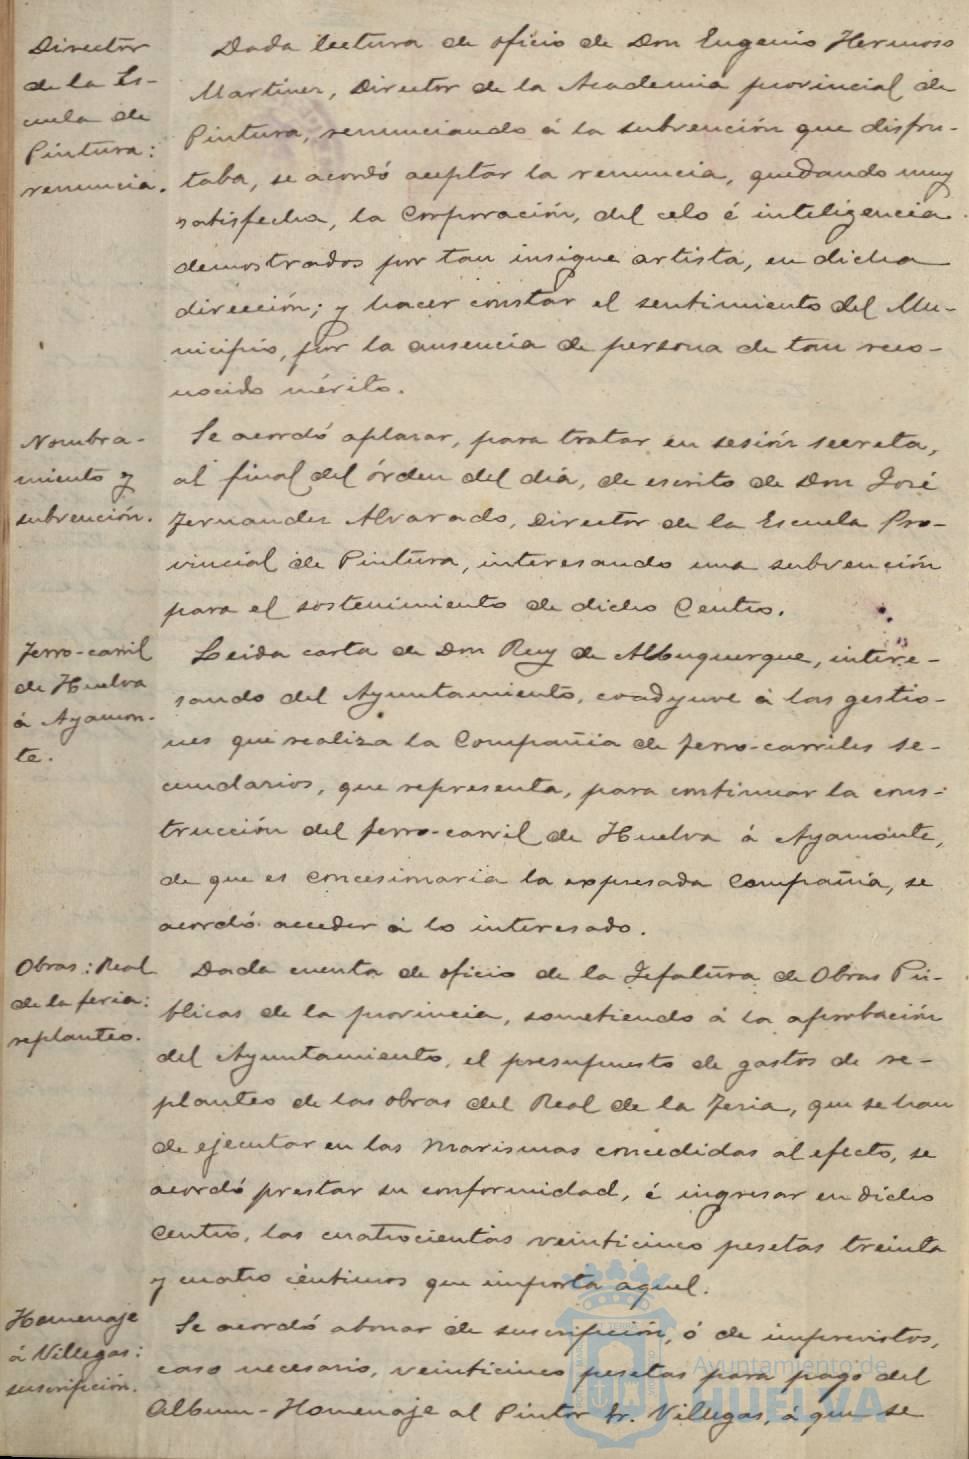 Director
de la Es-
cuela de
Pintura:
renuncia.
Dada lectura de oficio de Don Eugenio Hermoso
Martinez, Director de la Academia provincial de
Pintura, renunciando á la subvención que disfru-
taba, se acordó aceptar la renuncia, quedando muy
satisfecha, la Corporación, del celo é inteligencia
demostrados por tan insigne artista, en dicha
dirección; y hacer constar el sentimiento del Mu-
nicipio, por la ausencia de persona de tan reco-
nocido mérito.
Nombra-
miento y
subvención.
Se acordó aplazar, para tratar en sesión secreta,
al final del órden del dia, de escrito de Don José
Fernandez Alvarado, Director de la Escuela Pro-
vincial de Pintura, interesando una subvención
para el sostenimiento de dicho Centro.
Ferro-carril
de Huelva
á Ayamon-
te.
Leida carta de Don Ruy de Albuquerque, intere-
sando del Ayuntamiento, coadyuve á las gestio-
nes que realiza la Compañia de ferro-carriles se-
cundarios, que representa, para continuar la cons-
trucción del ferro-carril de Huelva á Ayamonte,
de que es concesionaria la expresada Compañia, se
acordó acceder á lo interesado.
Obras: Real
de la feria:
replanteo.
Dada cuenta de oficio de la Jefatura de Obras Pú-
blicas de la provincia, sometiendo á la aprobación
del Ayuntamiento, el presupuesto de gastos de re-
planteo de las obras del Real de la Feria, que se han
de ejecutar en las Marismas concedidas al efecto, se
acordó prestar su conformidad, é ingresar en dicho
Centro, las cuatrocientas veinticinco pesetas treinta
y cuatro céntimos que importa aquel.
Homenaje
á Villegas:
suscripción.
Se acordó abonar de suscripción, ó de imprevistos,
caso necesario, veinticinco pesetas para pago del
Album-Homenaje al Pintor Sr. Villegas, á que se
Ayuntamiento de
HUELVA